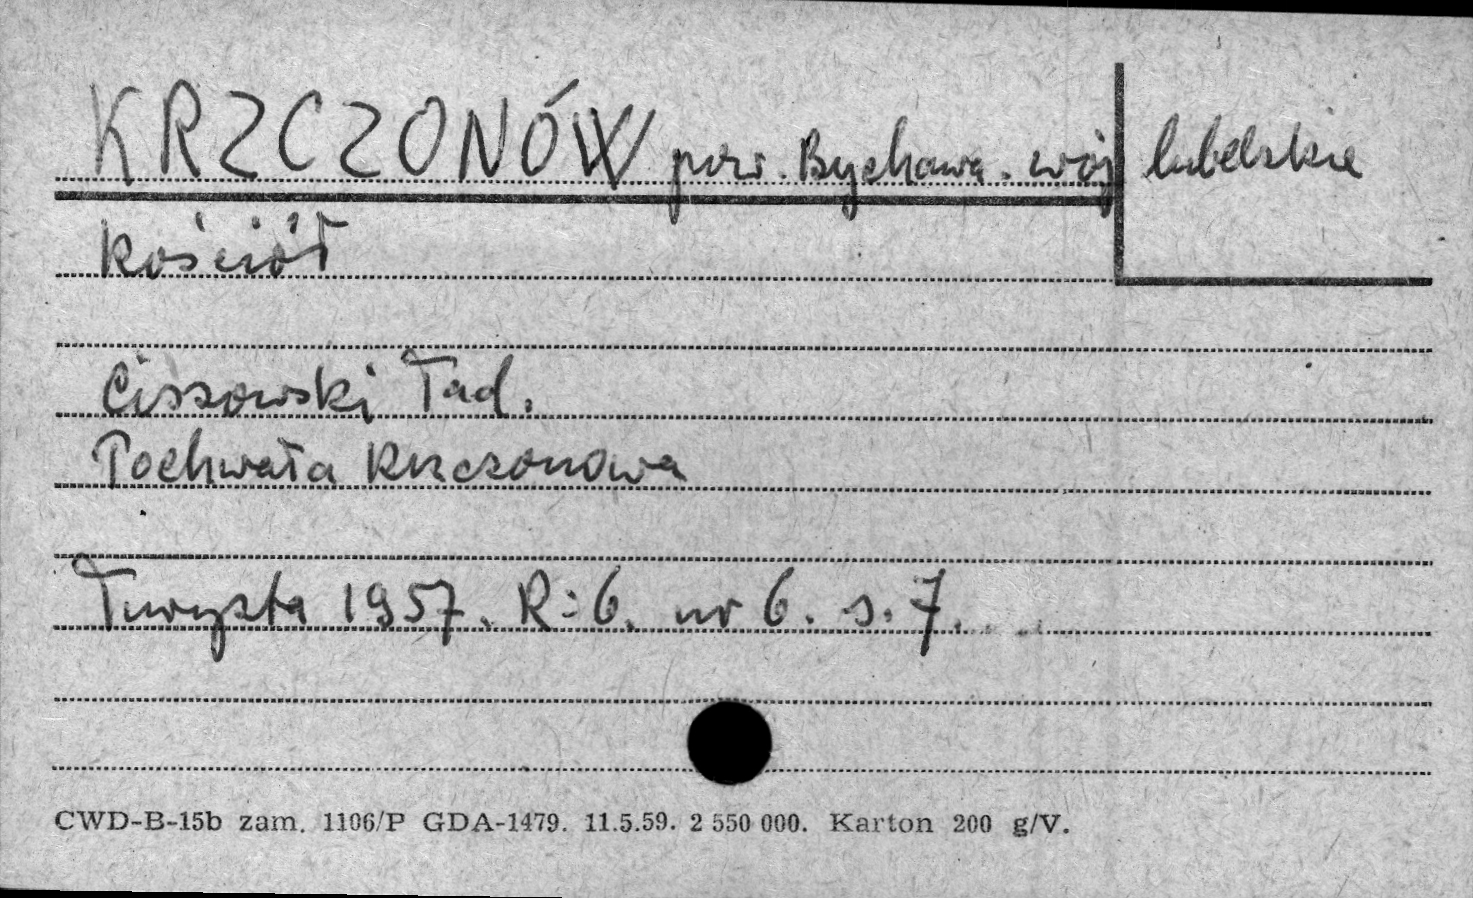 KRZCZONÓW pow. Bychawa. woj lubelskie
Kościół
Ciszowski Tad.
Pochwała Krzczonowa
Turysta 1957. R=6. nr 6. s. 7.
CWD-B-15b zam. 1106/P GDA-1479. 11.5.59. 2 550 000. Karton 200 g/V.